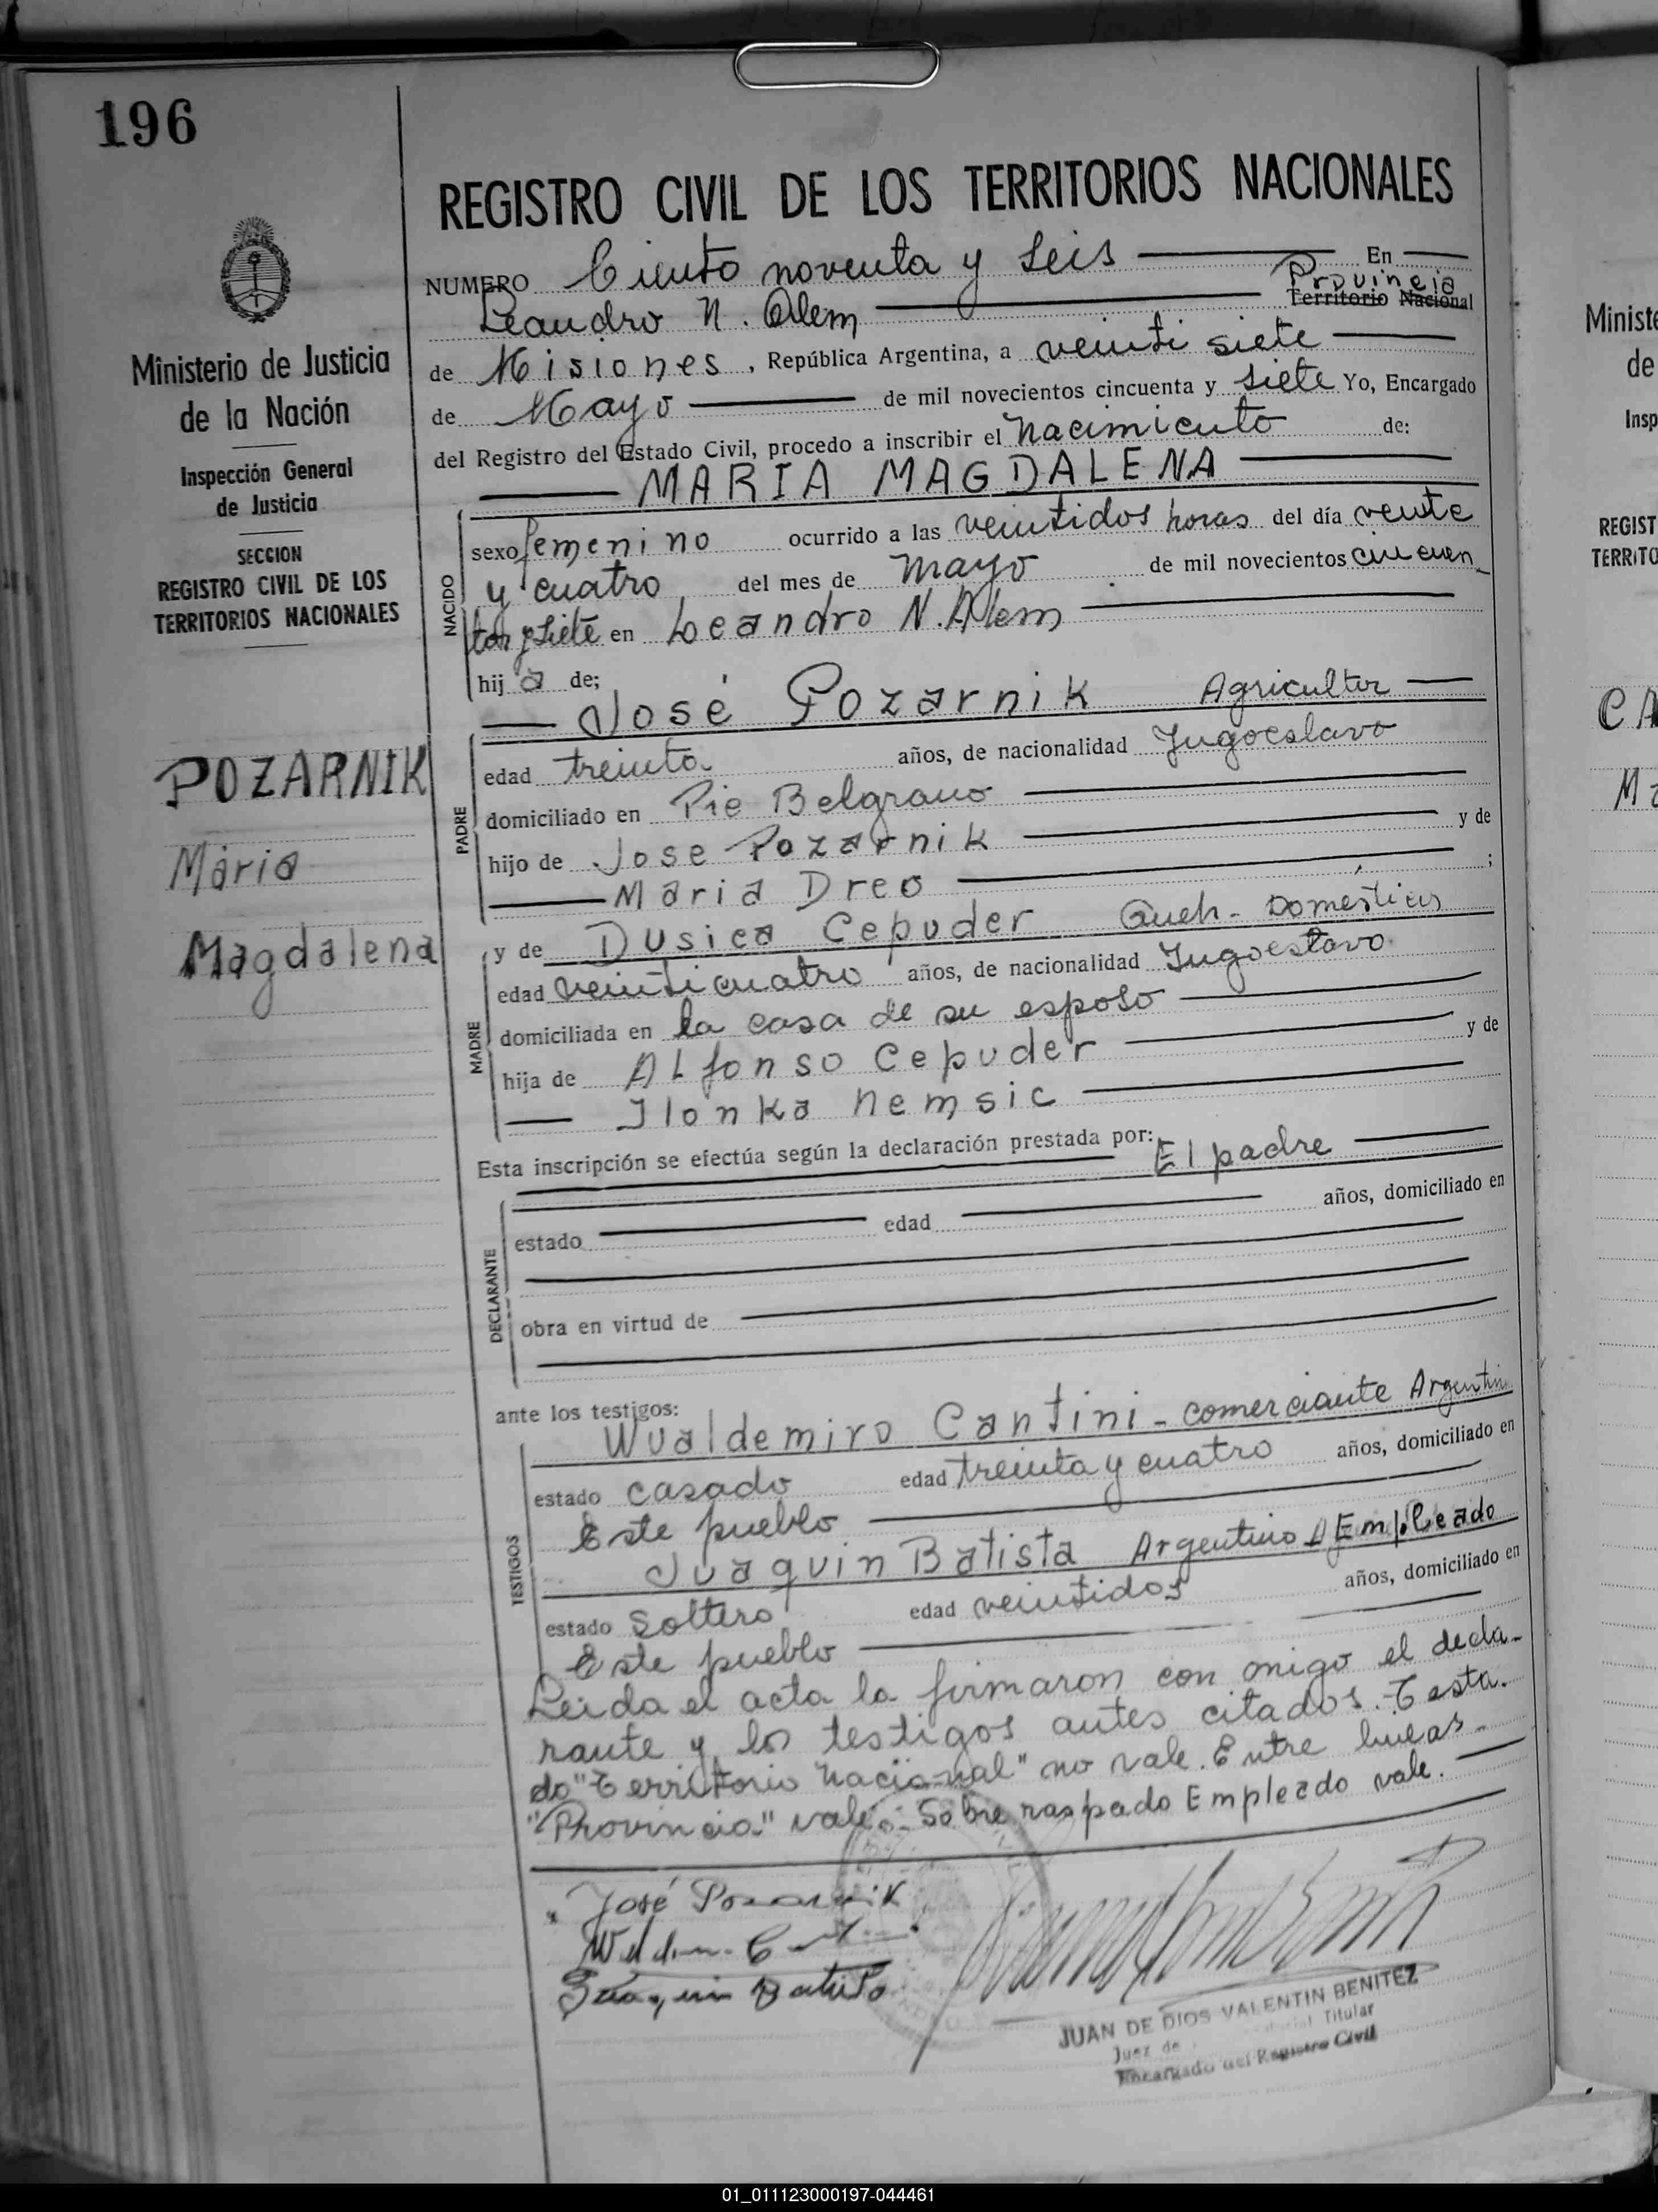 196
REGISTRO CIVIL DE LOS TERRITORIOS NACIONALES
NUMERO Ciento noventa y Seis En
Provincia
Leandro N. Alem Territorio Nacional
de Misiones, República Argentina, a veinti siete
de Mayo de mil novecientos cincuenta y siete Yo, Encargado
del Registro del Estado Civil, procedo a inscribir el Nacimiento de:
MARIA MAGDALENA
NACIDO
sexo femenino ocurrido a las veintidos horas del día veinte
y cuatro del mes de mayo de mil novecientos cincuen
ta y siete en Leandro N. Alem
hij a de;
José Pozarnik Agricultor
PADRE
edad treinta años, de nacionalidad Jugoeslavo
domiciliado en Pie Belgrano
hijo de Jose Pozarnik y de
Maria Dreo ;
y de Dusica Cepuder Queh- Domésticos
MADRE
edad veinticuatro años, de nacionalidad Jugoeslavo
domiciliada en la casa de su esposo
hija de ALfonso Cepuder y de
Ilonka Nemsic
Esta inscripción se efectúa según la declaración prestada por: El padre
DECLARANTE
estado edad años, domiciliado en
obra en virtud de
ante los testigos:
TESTIGOS
Wualdemiro Cantini - comerciante Argentin
estado casado edad treinta y cuatro años, domiciliado en
Este pueblo
Juaquin Batista Argentino Empleado
estado Soltero edad veintidos años, domiciliado en
Este pueblo
Leida el acta la firmaron con migo el decla-
rante y los testigos antes citados. Testa-
do "Territorio Nacional" no vale. Entre lineas-
"Provincia" vale.- Sobre raspado Empleado vale.
José Pozarnik
Juaquin Batista
JUAN DE DIOS VALENTIN BENITEZ
Juez de Titular
Encargado del Registro Civil
Ministerio de Justicia
de la Nación
Inspección General
de Justicia
SECCION
REGISTRO CIVIL DE LOS
TERRITORIOS NACIONALES
POZARNIK
Maria
Magdalena
Ministe
de
Insp
REGIST
TERRITO
CA
Ma
01_011123000197-044461